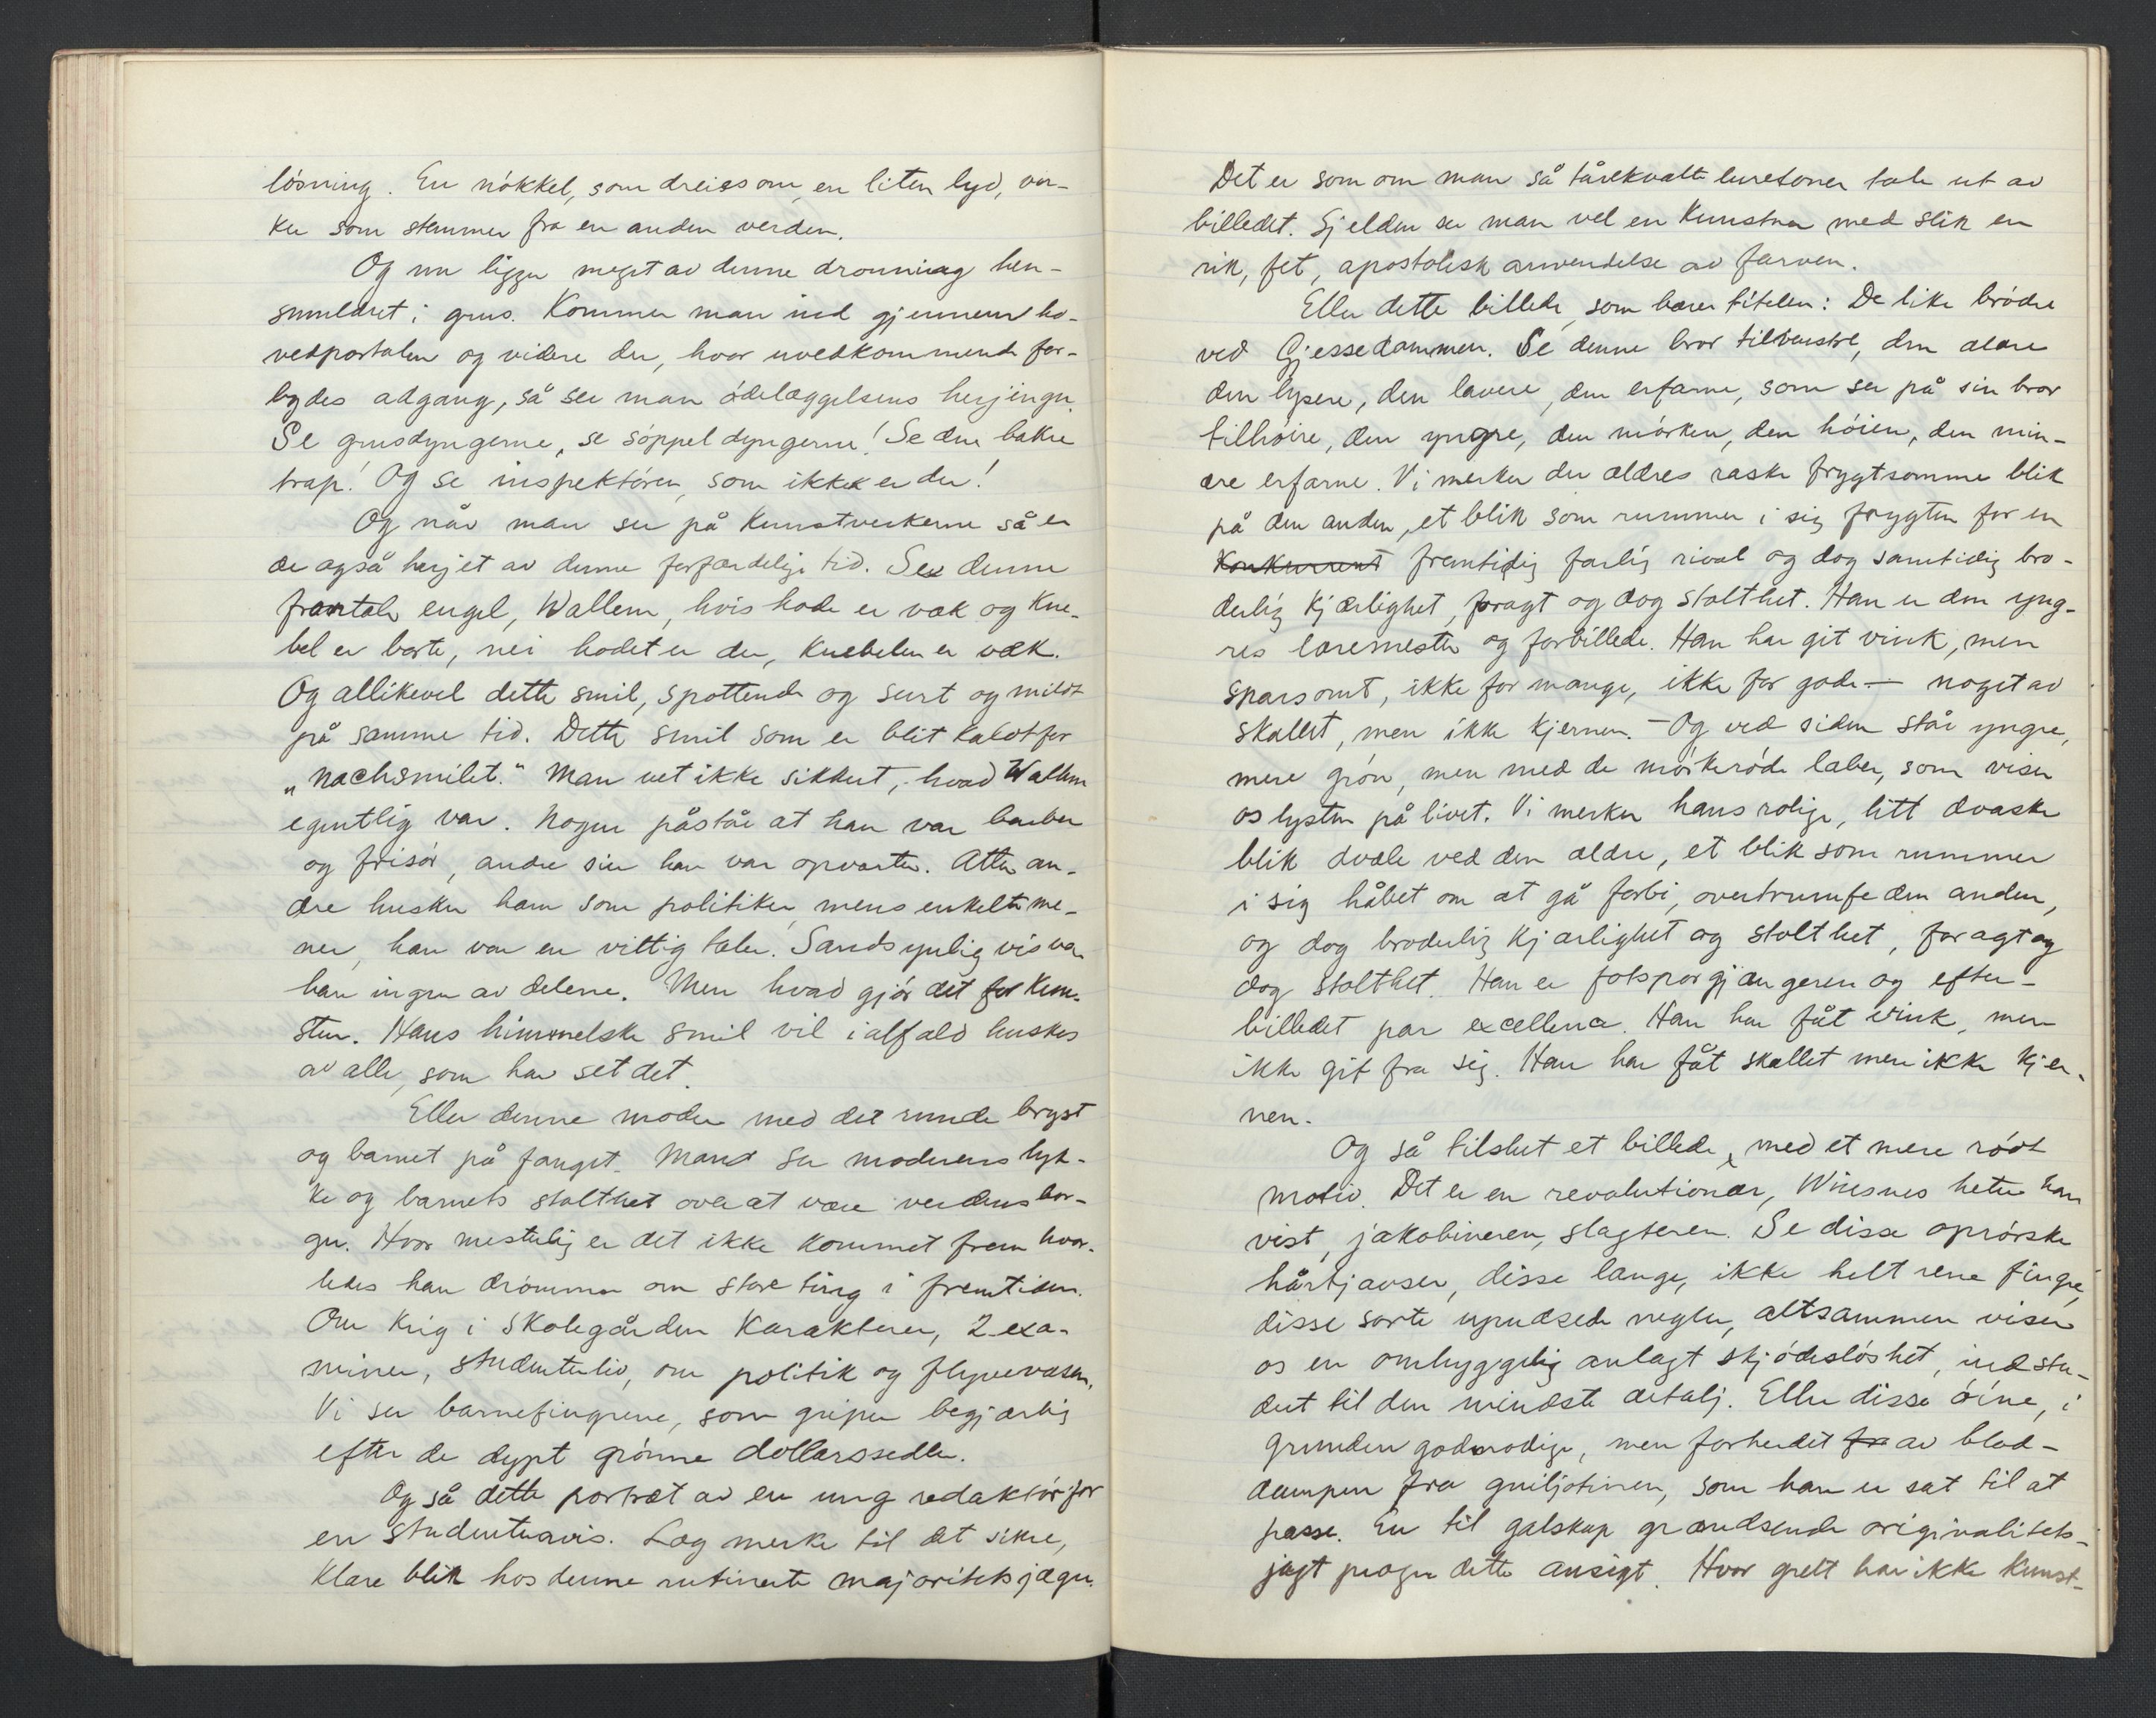 lösning. En nökkel, som dreies om, en liten lyd, en-
ker som stemmer fra en anden verden.
Og nu ligger meget av denne dronning hen-
smuldret i grus. Kommer man ind gjennem ho-
vedportalen og videre der, hvor uvedkommende for-
bydes adgang, så ser man ödelæggelsens herjinger.
Se grusdyngerne, se söppeldyngerne! Se den bakre
trap! Og se inspektören, som ikke er der!
Og når man ser på kunstverkerne så er
de også herjet av denne forfærdelige tid. Se denne
frontale engel, Wallem, hvis hode er væk og kne-
bel er borte, nei hodet er der, knebelen er væk.
Og allikevel dette smil, spottende og surt og mildt
på samme tid. Dette smil som er blit kaldt for
„Nachsmilet." Man vet ikke sikkert, hvad Wallem
egentlig var. Nogen påstår at han var barber
og frisör, andre sier han var opvarter. Atter an-
dre husker ham som politiker, mens enkelte me-
ner, han var en vittig taler. Sandsynligvis var
han ingen av delene. Men hvad gjör det for kun-
sten. Hans himmelske smil vil ialfald huskes
av alle, som har set det.
Eller denne moder med det runde bryst
og barnet på fanget. Mand ser moderens lyk-
ke og barnets stolthet over at være verdensbor-
ger. Hvor mesterlig er det ikke kommet frem hvor-
ledes han drömmer om store ting i fremtiden.
Om krig i skolegården karakterer, 2 exa-
miner, studenterliv, om politik og flyvevæsen.
Vi ser barnefingrene, som griper begjærlig
efter de dypt grönne dollarssedler.
Og så dette portræt av en ung redaktör for
en studenteravis. Læg merke til det sikre,
klare blik hos denne rutinerte majoritetsjæger.
Det er som om man så tårekvalte luretoner tale ut av
billedet. Sjelden ser man vel en kunstner med slik en
rik, fet, apostolisk anvendelse av farven.
Eller dette billede, som bærer titelen: De like brödre
ved Gjessedammen. Se denne bror tilvenstre, den ældre
den lysere, den lavere, den erfarne, som ser på sin bror
tilhöire, den yngre, den mörken, den höien, den min-
dre erfarne. Vi merker den ældres raske frygtsomme blik
på den anden, et blik som rummer i sig frygten for en
konkurrent fremtidig farlig rival og dog samtidig bro-
derlig kjærlighet, foragt og dog stolthet. Han er den yng-
res læremester og forbillede. Han har git vink, men
sparsomt, ikke for mange, ikke for gode — noget av
skallet, men ikke kjernen. — Og ved siden står yngre,
mere grön, men med de mörkeröde læber, som viser
os lysten på livet. Vi merker hans rolige, litt dvaske
blik dvæle ved den ældre, et blik som rummer
i sig håbet om at gå forbi, overtrumfe den anden,
og dog broderlig kjærlighet og stolthet, foragt og
dog stolthet. Han er fotsporgjængeren og efter-
billedet par excellence. Han har fåt vink, men
ikke git fra sig. Han har fåt skallet men ikke kjer-
nen.
Og så tilslut et billede, med et mere rödt
motiv. Det er en revolutionær, Winsnes heter han
vist, jakobineren, slagteren. Se disse oprörske
hårtjavser, disse lange, ikke helt rene fingre,
disse sorte upudsede negler, altsammen viser
os en omhyggelig anlagt skjödeslöshet, indstu-
dert til den mindste detalj. Eller disse öine, i
grunden godmodige, men forherdet fra av blod-
dampen fra guiljotinen, som han er sat til at
passe. En til galskap grændsende originalitets-
jagt præger dette ansigt. Hvor grelt har ikke kunst-